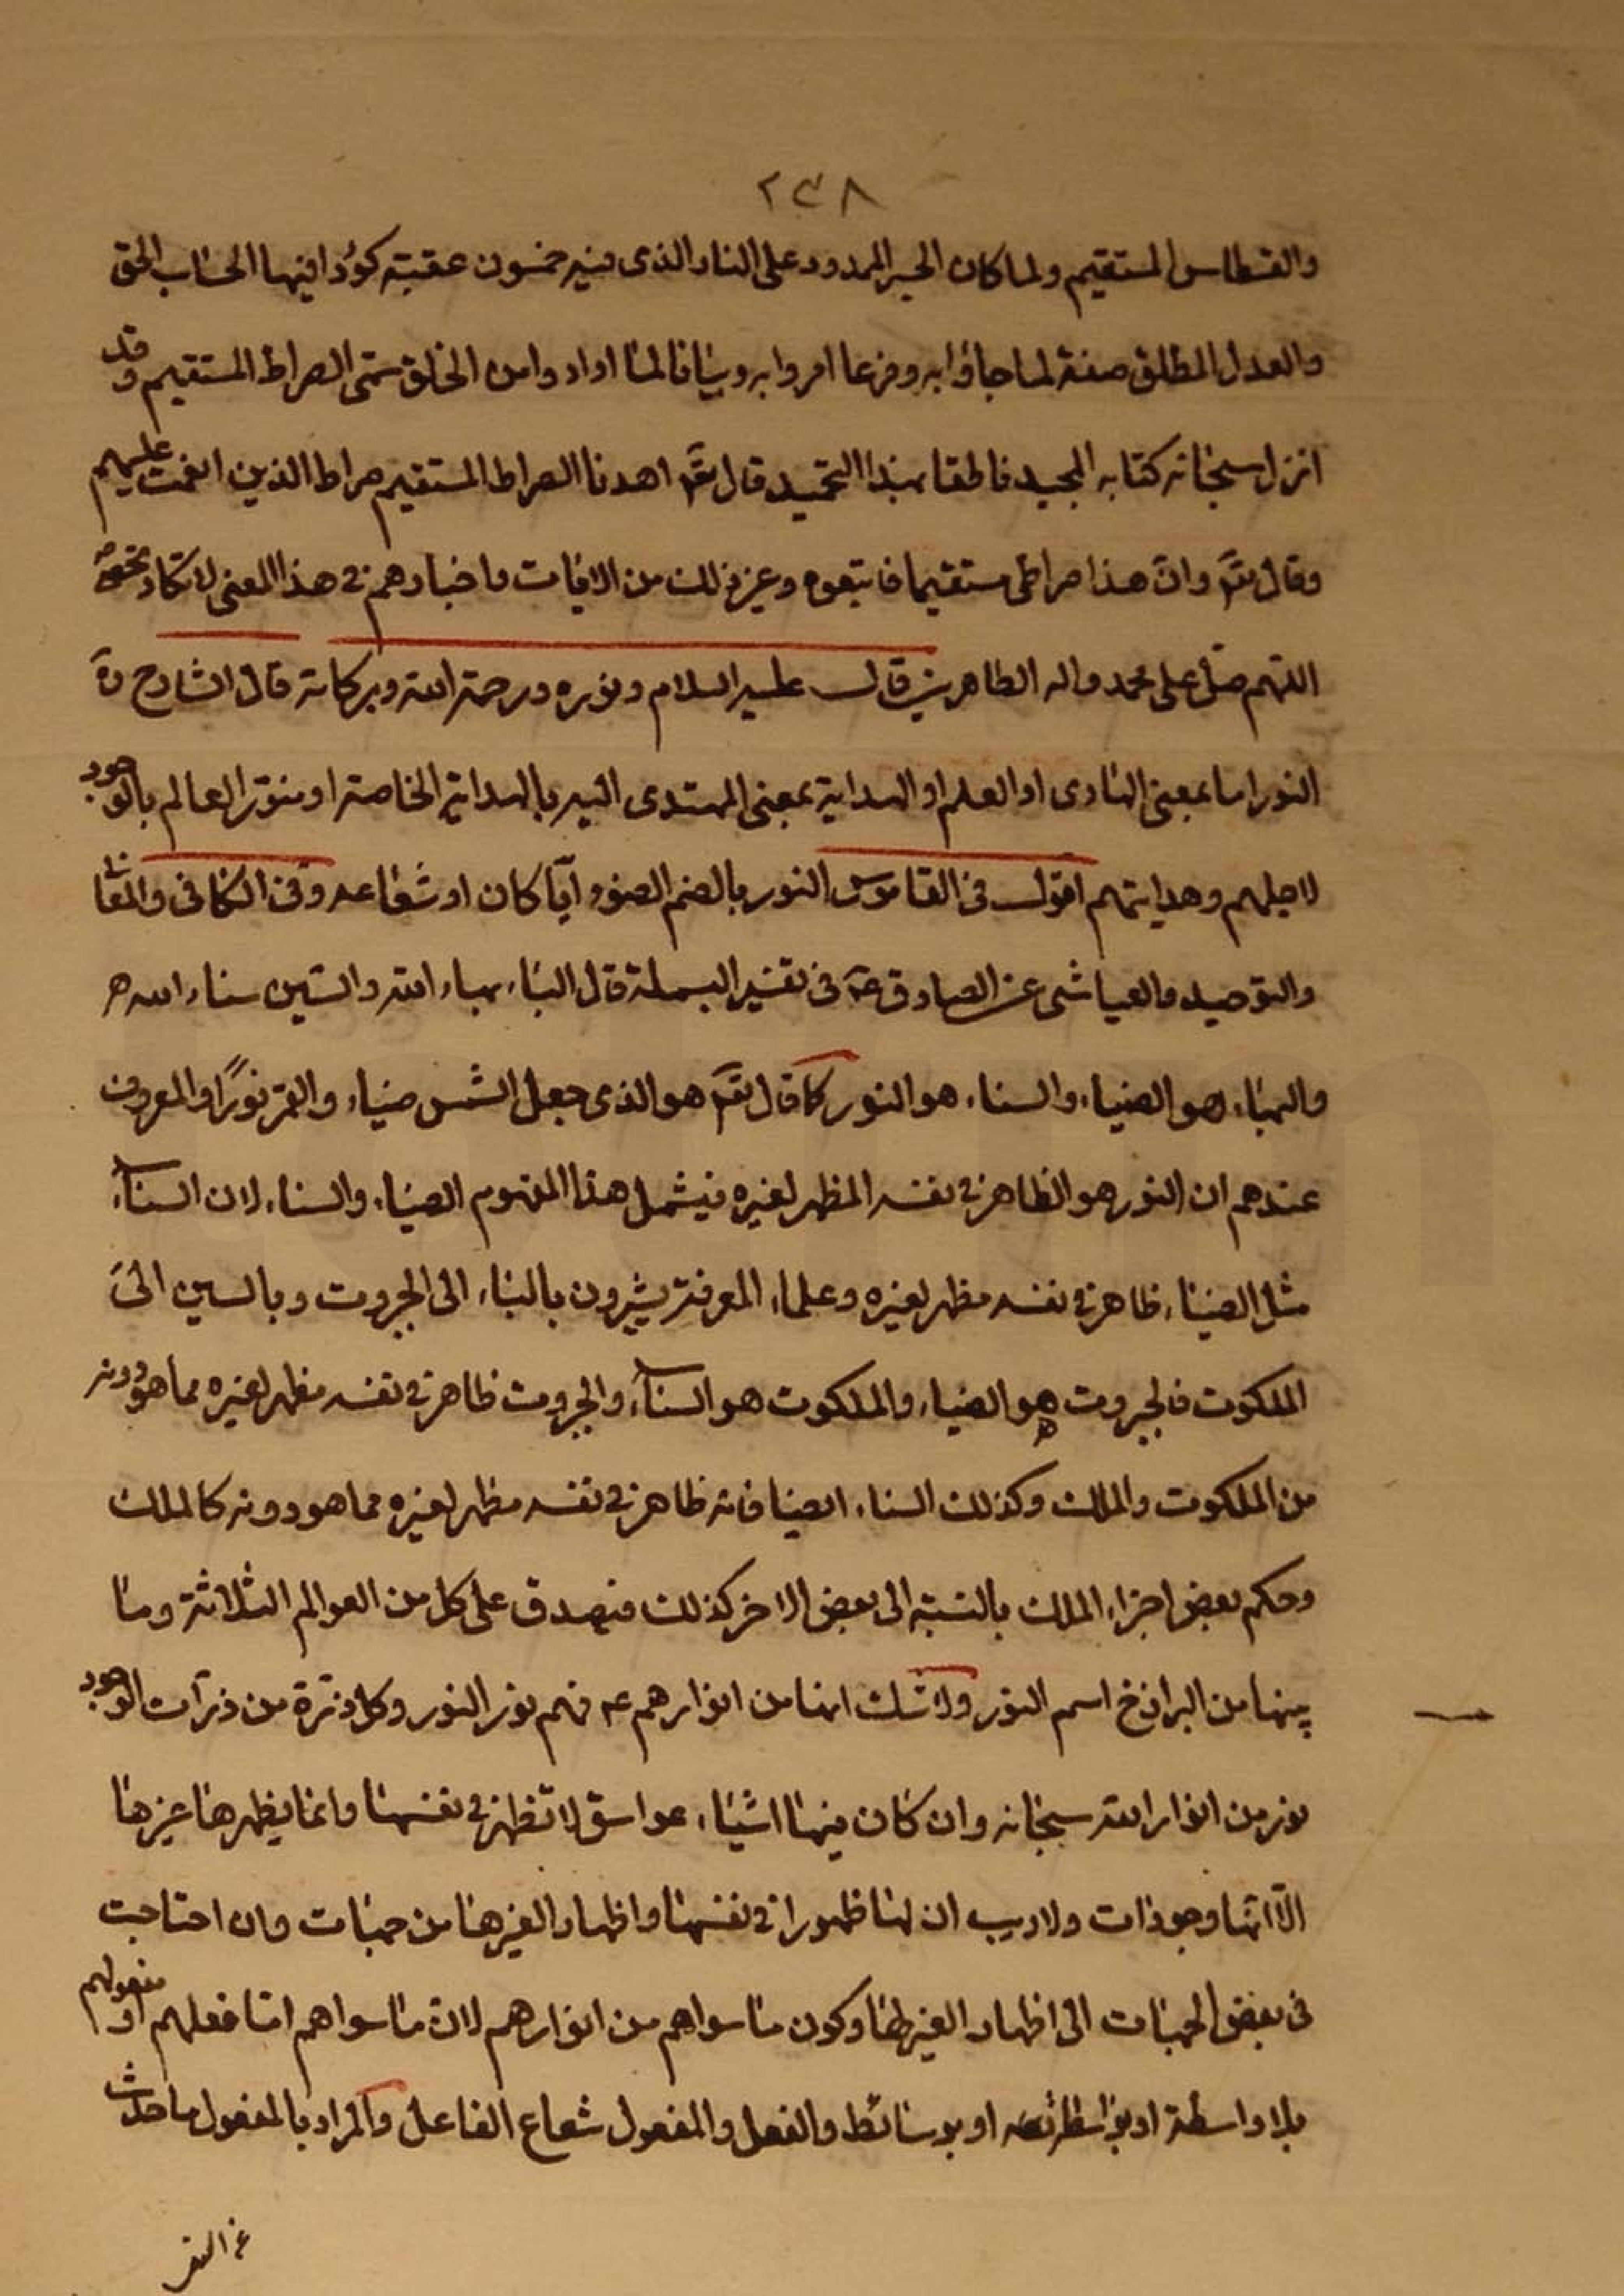 ٢٣٨
والقسطاس المستقيم ولما كان الجسر الممدود على النار الذى فيه خمسون عقبة كؤدا فيها الحساب الحق
والعدل المطلق صفة لما جاؤا به وفرعا امروا به وبيانا لما ارادوا من الخلق سمى الصراط المستقيم وقد
انزل سبحانه كتابه المجيد ناطقا بهذا التمجيد قال تعٓ اهدنا الصراط المستقيم صراط الذين انعمت عليهم
وقال تعٓ وانّ هذا صراطى مستقيما فاتبعوه وغير ذلك من الايات واخبارهم فى هذا المعنى لا تكاد تحصى
اللهم صل على محمد واله الطاهرين قال عليه السلام ونوره ورحمة الله وبركاته قال الشارح رهٓ
النور اما بمعنى الهادى او العلم او الهداية بمعنى المهتدى اليه بالهداية الخاصة او منوّر العالم بالوجود
لاجلهم وهدايتهم اقول فى القاموس النور بالضم الضوء ايّا كان او شعاعه وفى الكافى والمعانى
والتوحيد والعياشى عن الصادق عٓ فى تفسير البسملة قال الباء بهاء الله والسّين سناء الله هـ
والبهاء هو الضياء والسناء هو النور كما قال تعٓ هو الذى جعل الشمس ضياء والقمر نورًا والمعروف
عندهم ان النور هو الظاهر فى نفسه المظهر لغيره فيشمل هذا المفهوم الضياء والسناء لان السناۤء
مثل الضياء ظاهر فى نفسه مظهر لغيره وعلماء المعرفة يشيرون بالباء الى الجبروت وبالسين الى
الملكوت فالجبروت هو الضياء والملكوت هو السناۤء والجبروت ظاهر فى نفسه مظهر لغيره مما هو دونه
من الملكوت والملك وكذلك السناء ايضا فانه ظاهر فى نفسه مظهر لغيره مما هو دونه كالملك
وحكم بعض اجزاء الملك بالنسبة الى بعض الاخر كذلك فيصدق على كل من العوالم الثلاثة وما
بينها من البرازخ اسم النور ولا شك انها من انوارهم عٓ فهم نور النور وكل ذرّة من ذرّات الوجود
نور من انوار الله سبحانه وان كان فيها اشياء غواسق لا تظهر فى نفسها وانما يظهرها غيرها
الّا انّها وجودات ولا ريب ان لها ظهورا فى نفسها واظهارا لغيرها من جهات وان احتاجت
فى بعض الجهات الى اظهار الغير لها وكون ما سواهم من انوارهم لانّ ما سواهم امّا فعلهم او مفعولهم
بلا واسطة او بواسطة او بوسائط والفعل والمفعول شعاع الفاعل والمراد بالمفعول ما حدث